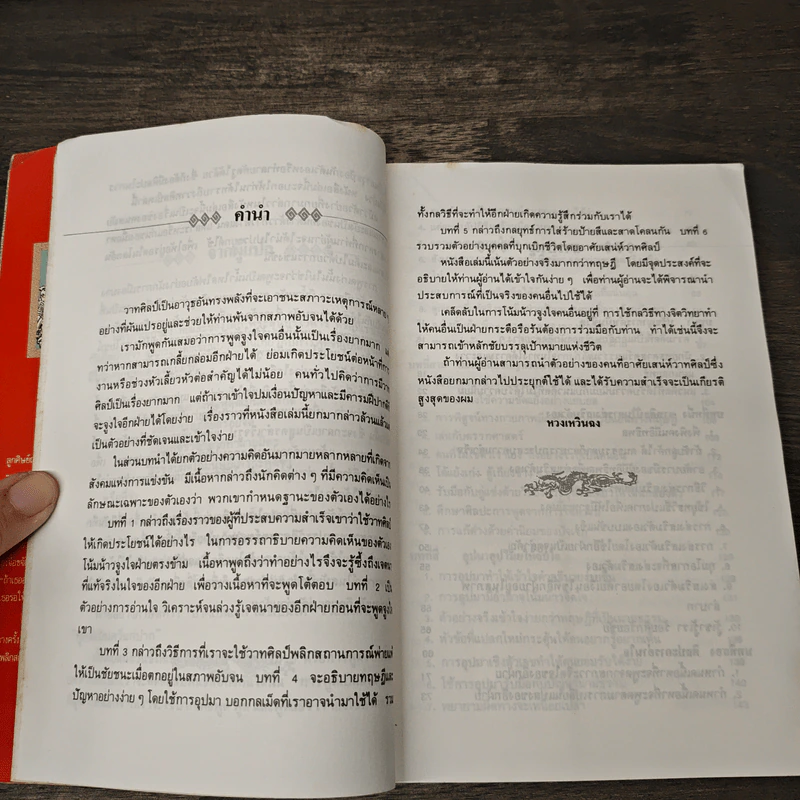 คำนำ
วาทศิลป์เป็นอาวุธอันทรงพลังที่จะเอาชนะสภาวะเหตุการณ์หลาย
อย่างที่ผันแปรอยู่และช่วยให้ท่านพ้นจากสภาพอับจนได้ด้วย
เรามักพูดกันเสมอว่า การพูดจูงใจคนอื่นนั้นเป็นเรื่องยากมาก
ทว่าหากสามารถเกลี้ยกล่อมอีกฝ่ายได้ ย่อมเกิดประโยชน์ต่อหน้าที่การ
งานหรือช่วงหัวเลี้ยวหัวต่อสำคัญได้ไม่น้อย คนทั่วไปคิดว่าการมีวาท
ศิลป์เป็นเรื่องยากมาก แต่ถ้าเราเข้าใจปมเงื่อนปัญหาและมีคารมฝีปากก็
จะจูงใจอีกฝ่ายได้โดยง่าย เรื่องราวที่หนังสือเล่มนี้ยกมากล่าวล้วนแล้ว
เป็นตัวอย่างที่ชัดเจนและเข้าใจง่าย
ในส่วนบทนำได้ยกตัวอย่างความคิดอันมากมายหลากหลายที่เกิดจาก
สังคมแห่งการแข่งขัน มีเนื้อหากล่าวถึงนักคิดต่าง ๆ ที่มีความคิดเห็นเป็น
ลักษณะเฉพาะของตัวเองว่า พวกเขากำหนดฐานะของตัวเองได้อย่างไร
บทที่ 1 กล่าวถึงเรื่องราวของผู้ที่ประสบความสำเร็จเขาว่าใช้วาทศิลป์
ให้เกิดประโยชน์ได้อย่างไร ในการอรรถาธิบายความคิดเห็นของตัวเอง
โน้มน้าวจูงใจฝ่ายตรงข้าม เนื้อหาพูดถึงว่าทำอย่างไรจึงจะรู้ซึ้งถึงเจตนา
ที่แท้จริงในใจของอีกฝ่าย เพื่อวางเนื้อหาที่จะพูดโต้ตอบ บทที่ 2 เป็น
ตัวอย่างการอ่านใจ วิเคราะห์จนล่วงรู้เจตนาของอีกฝ่ายก่อนที่จะพูดจูงใจ
เขา
บทที่ 3 กล่าวถึงวิธีการที่เราจะใช้วาทศิลป์พลิกสถานการณ์พ่ายแพ้
ให้เป็นชัยชนะเมื่อตกอยู่ในสภาพอับจน บทที่ 4 จะอธิบายทฤษฎีและ
ปัญหาอย่างง่าย ๆ โดยใช้การอุปมา บอกกลเม็ดที่เราอาจนำมาใช้ได้ รวม
ทั้งกลวิธีที่จะทำให้อีกฝ่ายเกิดความรู้สึกร่วมกับเราได้
บทที่ 5 กล่าวถึงกลยุทธ์การใส่ร้ายป้ายสีและสาดโคลนกัน บทที่ 6
รวบรวมตัวอย่างบุคคลที่บุกเบิกชีวิตโดยอาศัยเสน่ห์วาทศิลป์
หนังสือเล่มนี้เน้นตัวอย่างจริงมากกว่าทฤษฎี โดยมีจุดประสงค์ที่จะ
อธิบายให้ท่านผู้อ่านได้เข้าใจกันง่าย ๆ เพื่อท่านผู้อ่านจะได้พิจารณานำ
ประสบการณ์ที่เป็นจริงของคนอื่นไปใช้ได้
เคล็ดลับในการโน้มน้าวจูงใจคนอื่นอยู่ที่ การใช้กลวิธีทางจิตวิทยาทำ
ให้คนอื่นเป็นฝ่ายกระตือรือร้นต้องการร่วมมือกับท่าน ทำได้เช่นนี้จึงจะ
สามารถเข้าหลักชัยบรรลุเป้าหมายแห่งชีวิต
ถ้าท่านผู้อ่านสามารถนำตัวอย่างของคนที่อาศัยเสน่ห์วาทศิลป์ซึ่ง
หนังสือยกมากล่าวไปประยุกต์ใช้ได้ และได้รับความสำเร็จจะเป็นเกียรติ
สูงสุดของผม
หวงเหวินฉง